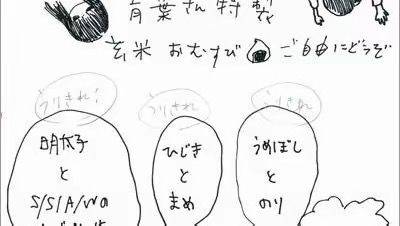 青葉さん特製
玄米 おむすび ご自由にどうぞ
うりきれ!
うりきれ
うりきれ
明太子
と
ひじき
と
まめ
うめぼし
と
のり